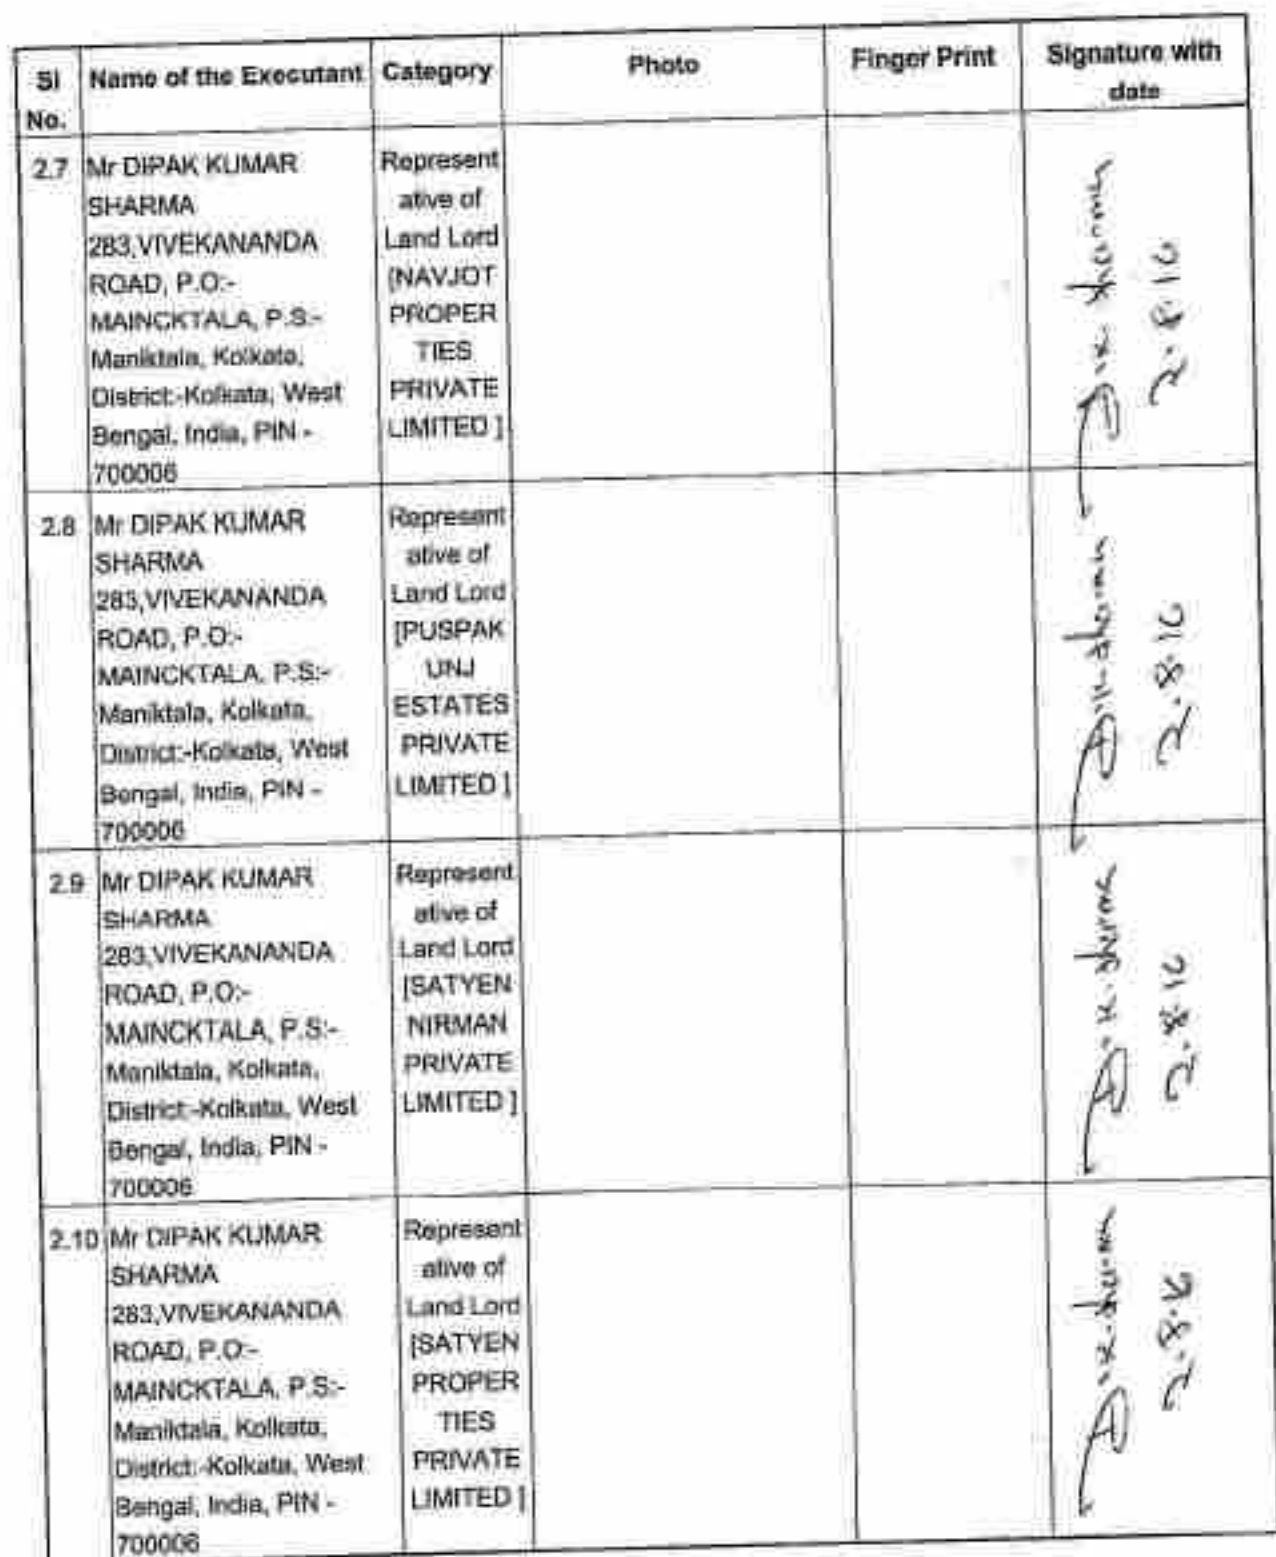 Sl No.
Name of the Executant
Category
Photo
Finger Print
Signature with date
2.7
Mr DIPAK KUMAR
SHARMA
283,VIVEKANANDA
ROAD, P.O:-
MAINCKTALA, P.S:-
Maniktala, Kolkata,
District:-Kolkata, West
Bengal, India, PIN -
700006
Represent
ative of
Land Lord
[NAVJOT
PROPER
TIES
PRIVATE
LIMITED ]
D.K. Sharma
2.8.16
2.8
Mr DIPAK KUMAR
SHARMA
283,VIVEKANANDA
ROAD, P.O:-
MAINCKTALA, P.S:-
Maniktala, Kolkata,
District:-Kolkata, West
Bengal, India, PIN -
700006
Represent
ative of
Land Lord
[PUSPAK
UNJ
ESTATES
PRIVATE
LIMITED ]
D.K. Sharma
2.8.16
2.9
Mr DIPAK KUMAR
SHARMA
283,VIVEKANANDA
ROAD, P.O:-
MAINCKTALA, P.S:-
Maniktala, Kolkata,
District:-Kolkata, West
Bengal, India, PIN -
700006
Represent
ative of
Land Lord
[SATYEN
NIRMAN
PRIVATE
LIMITED ]
D.K. Sharma
2.8.16
2.10
Mr DIPAK KUMAR
SHARMA
283,VIVEKANANDA
ROAD, P.O:-
MAINCKTALA, P.S:-
Maniktala, Kolkata,
District:-Kolkata, West
Bengal, India, PIN -
700006
Represent
ative of
Land Lord
[SATYEN
PROPER
TIES
PRIVATE
LIMITED ]
D.K. Sharma
2.8.16